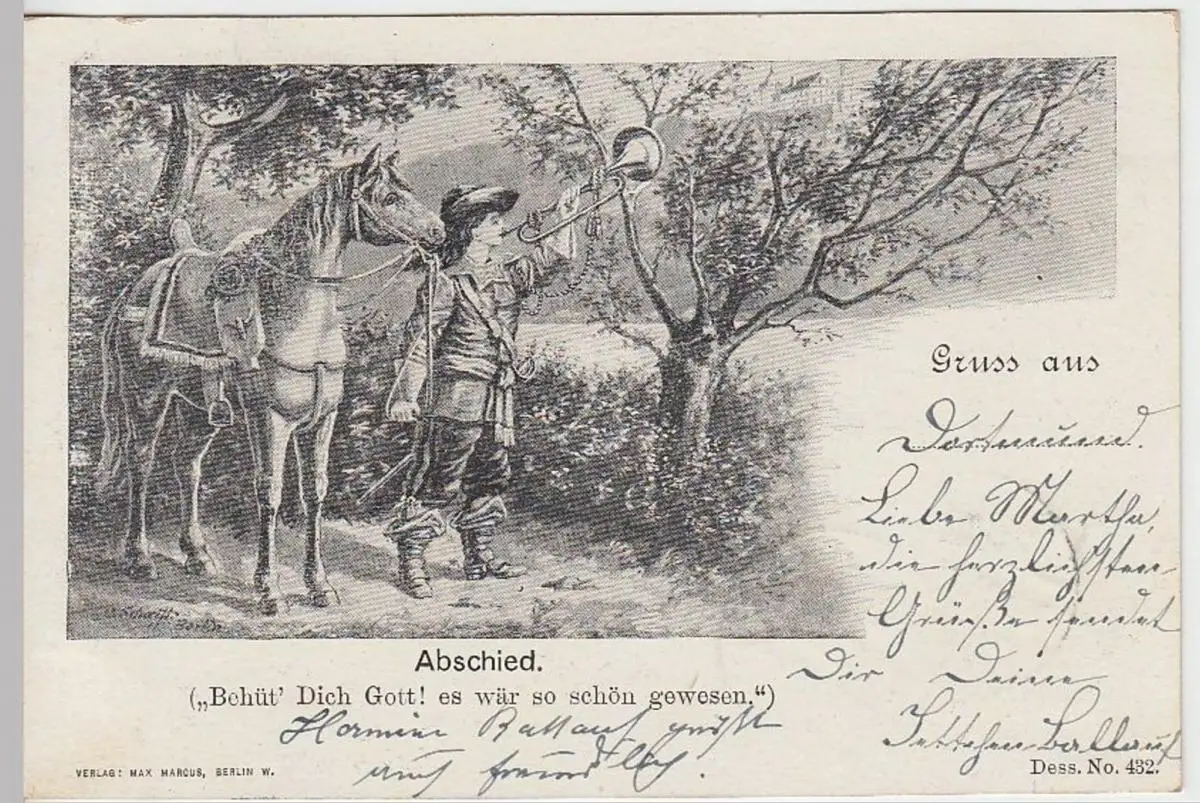 Gruss aus
Dortmund.
Liebe Martha,
die herzlichsten
Grüße sendet
Dir Deine
Ballauf
Abschied.
(„Behüt' Dich Gott! es wär so schön gewesen.“)
Ballauf grüßt
auch freundlich.
VERLAG: MAX MARCUS, BERLIN W.
Dess. No. 432.